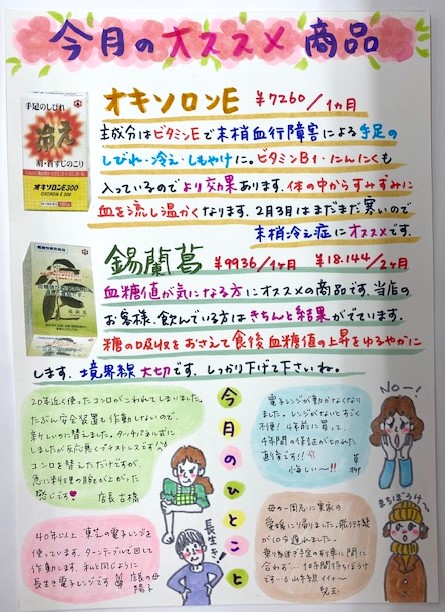 今月のオススメ商品
手足のしびれ
冷え
肩・首すじのこり
オキソロンE300
オキソロンE ¥7260/1ヵ月
主成分はビタミンEで末梢血行障害による手足の
しびれ・冷え・しもやけに。ビタミンB1・にんにくも
入っているのでより効果あります。体の中からすみずみに
血を流し温かくなります。2月3月はまだまだ寒いので
末梢冷え症にオススメです。
錫蘭葛 ¥9936/1ヶ月 ¥18.144/2ヶ月
血糖値が気になる方にオススメの商品です。当店の
お客様、飲んでいる方はきちんと結果がでています。
糖の吸収をおさえて食後血糖値の上昇をゆるやかに
します。境界線大切です。しっかり下げて下さいね。
今月のひとこと
20年近く使ったコンロがこわれてしまいました。
たぶん安全装置も作動しないので、
新しいのに替えました。タッチパネル式に
しましたが反応悪くプチストレスです
コンロを替えただけですが、
急に料理の腕も上がった
感じです 店長 古橋
No〜!
電子レンジが動かなくなり
ました。レンジがないとすごく
不便！4年前に買って、
4年間の保証がとれた
直後です!!
悔しい〜!!
40年以上 東芝の電子レンジを
使っています。ターンテーブルで回して
作動します。私と同じように
長生き電子レンジです 店長の母
陽子
長生き！
まちぼうけ〜
母の一周忌に実家の
愛媛に帰りました。飛行機
が10分遅れました。
乗り継ぎ予定の列車に間に
合わず…1時間待ちぼうけ
です…